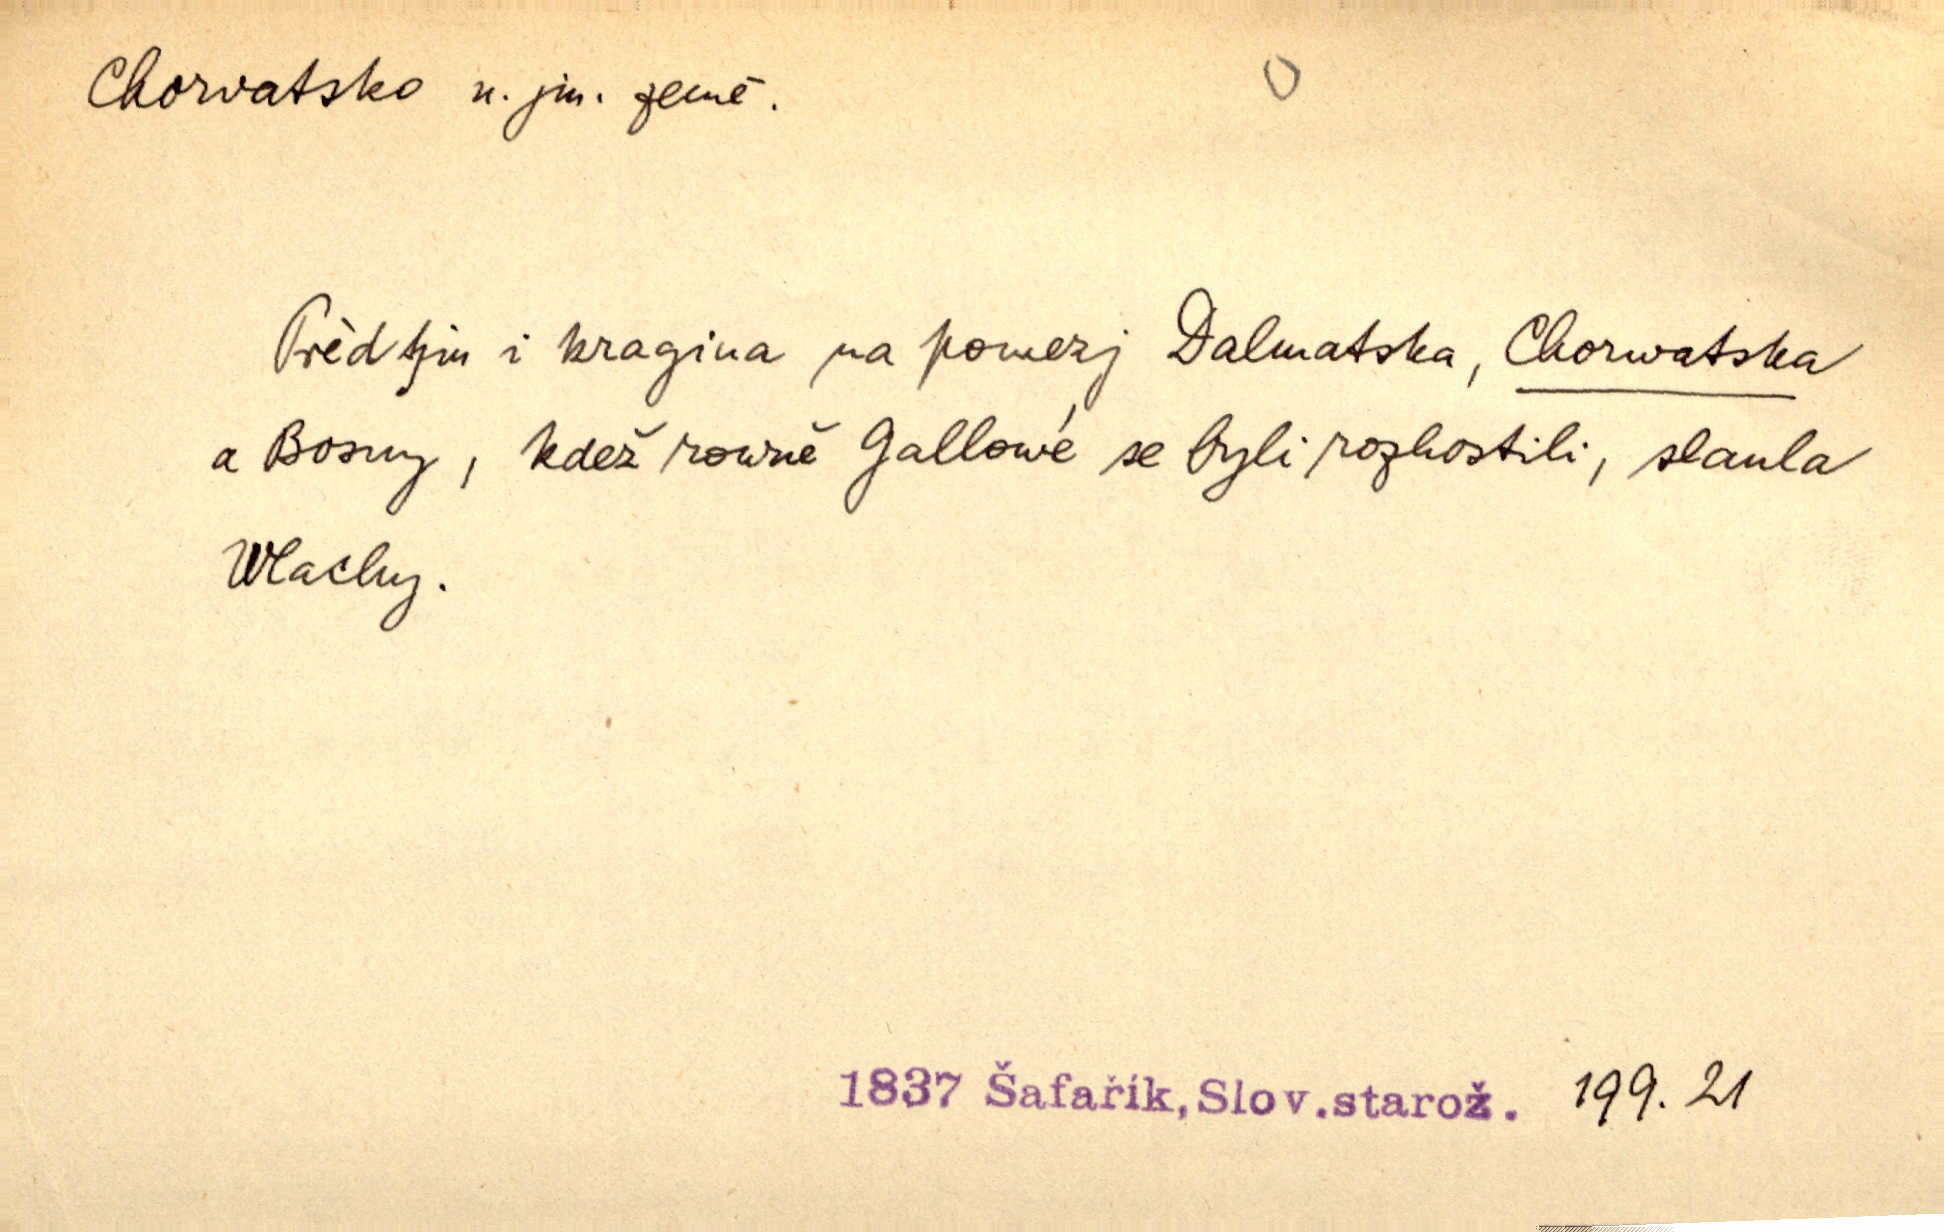 Chorvatsko n. jm. země.
Předtjm i kragina na pomezj Dalmatska, Chorwatska
a Bosny, kdež rowně Gallowé se byli rozhostili, slaula
Wlachy.
1837 Šafařík, Slov. starož. 199. 21